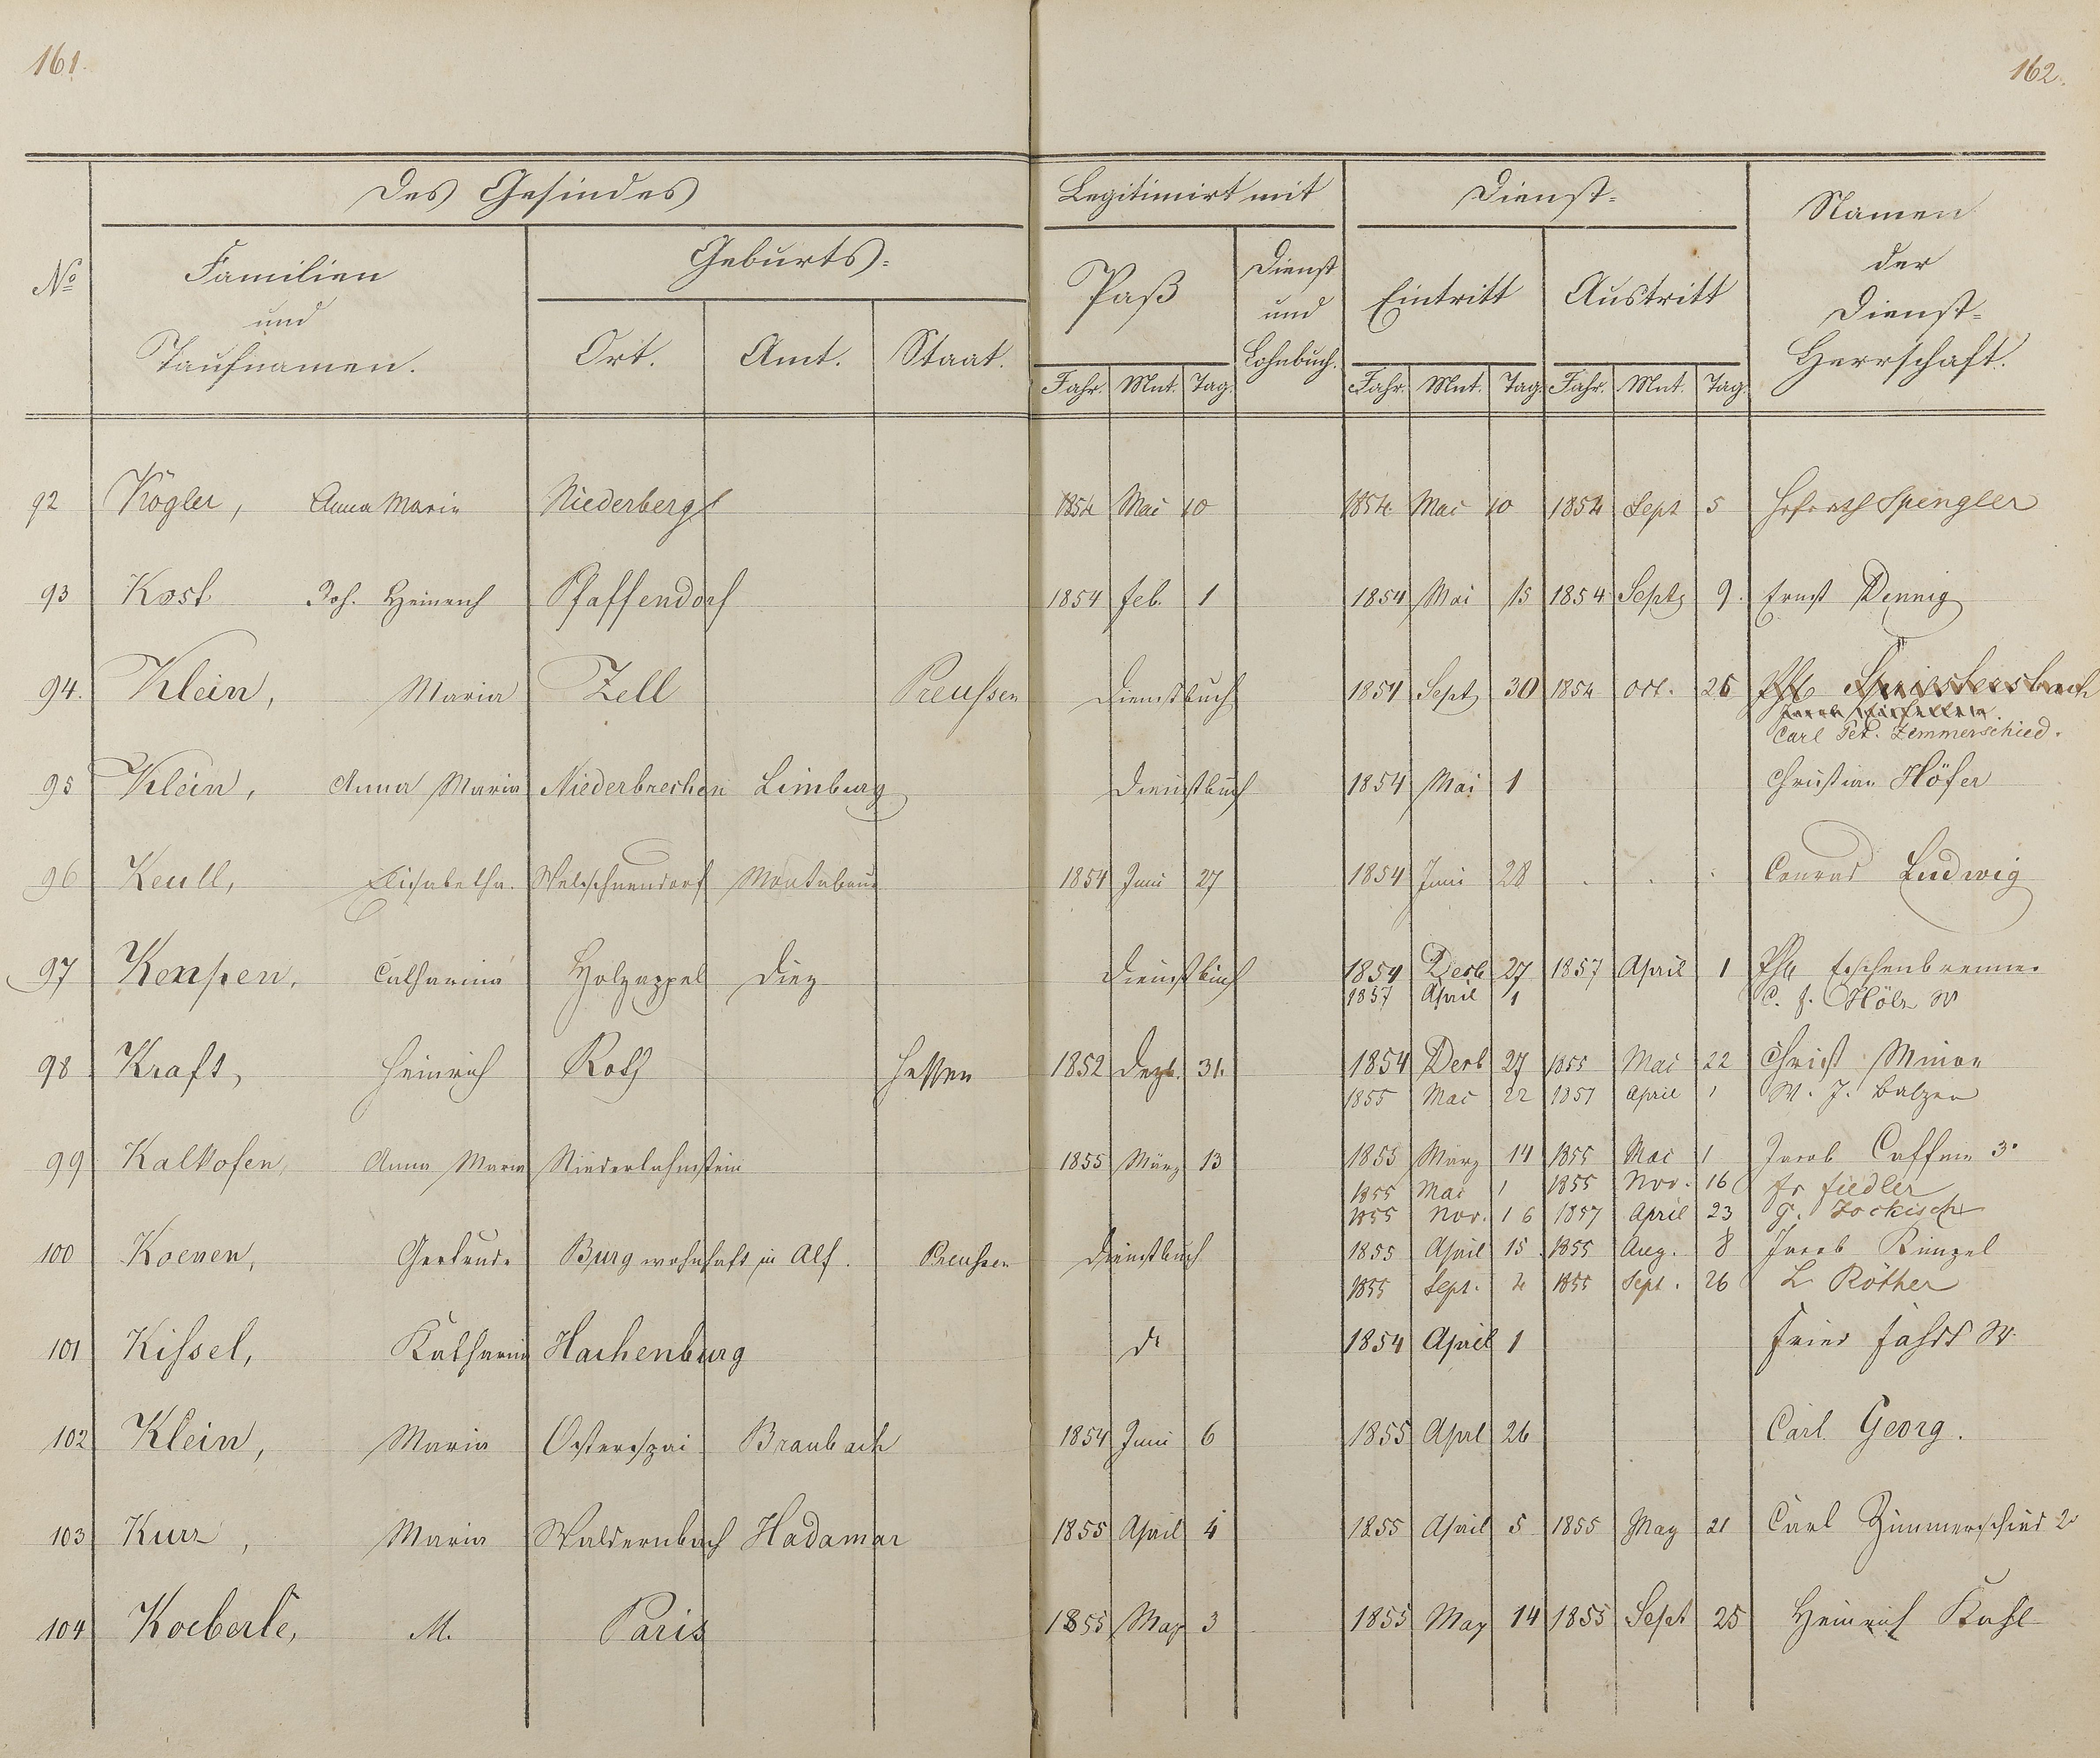 161.
162.
Des Gesindes
Legitimirt mit
Dienst-
Namen der Dienst-Herrschaft.
No
Familien und Taufnamen.
Geburts-
Paß
Dienst und Lohnbuch.
Eintritt
Austritt
Ort. Amt. Staat.
Jahr. Mnt. Tag. Jahr. Mnt. Tag. Jahr. Mnt. Tag.
92 Kögler, Anna Maria Niederberg 1854 Mai 10 1854 Mai 10 1854 Sept 5 Hofrath Spengler
93 Kost Joh. Heinrich Pfaffendorf 1854 Feb. 1 1854 Mai 15 1854 Sept 9. Ernst Dennig
94. Klein, Maria Zell Preussen Dienstbuch 1854 Sept 30 1854 Oct. 26 Phil
Carl Pet. Zimmerschied.
95 Klein, Anna Maria Niederbrechen Limburg Dienstbuch 1854 Mai 1 Christian Höfer
96 Keull, Elisabetha. Welschneudorf Montabaur 1854 Juni 27 1854 Juni 28 Conrad Ludwig
97 Kempen, Catharina Holzappel Diez Dienstbuch 1854 Decb 27 1857 April 1 Phil Eschenbrenner
1857 April 1 C. F. Hölz W
98 Kraft, Heinrich Roth Hessen 1852 Dezb. 31. 1854 Decb 27 1855 Mai 22 Christ Minor
1855 Mai 22 1857 April 1 W. J. Balzer
99 Kalkofen, Anna Maria Niederlahnstein 1855 März 13 1855 März 14 1855 Mai 1 Jacob Caffine 3.
1855 Mai 1 1855 Nov. 16 Fr Fiedler
1855 Nov. 16 1857 April 23 G. Zockisch
100 Koenen, Gertrude Burg wohnhaft in Alf. Preussen Dienstbuch 1855 April 15 1855 Aug. 8 Jacob Künzel
1855 Sept. 2 1855 Sept. 26 L Röther
101 Kissel, Katharina Hachenburg do 1854 April 1 Fried W.
102 Klein, Maria Osterspai Braubach 1854 Juni 6 1855 Aprl 26 Carl Georg.
103 Kurz, Maria Waldernbach Hadamar 1855 April 4 1855 April 5 1855 May 21 Carl Zimmerschied 2r
104 Koeberle, M. Paris 1855 May 3 1855 May 14 1855 Sept 25 Heinrich Kahl